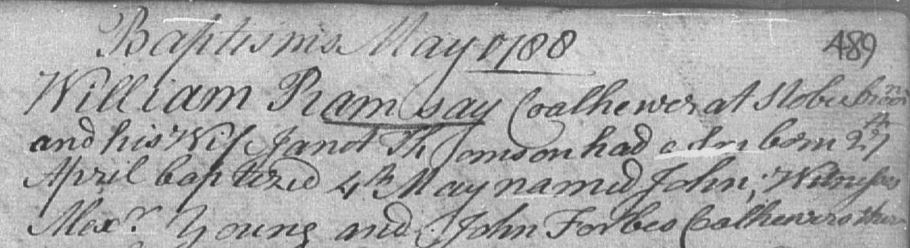 Baptisms May 1788 489
William Ramsay Coalhewer at Stobsbrae
and his Wife Janot Thomson had a Son born 27th
April baptized 4th May named John; Witnesses
Alexr. Young and John Forbes Coalhewers there